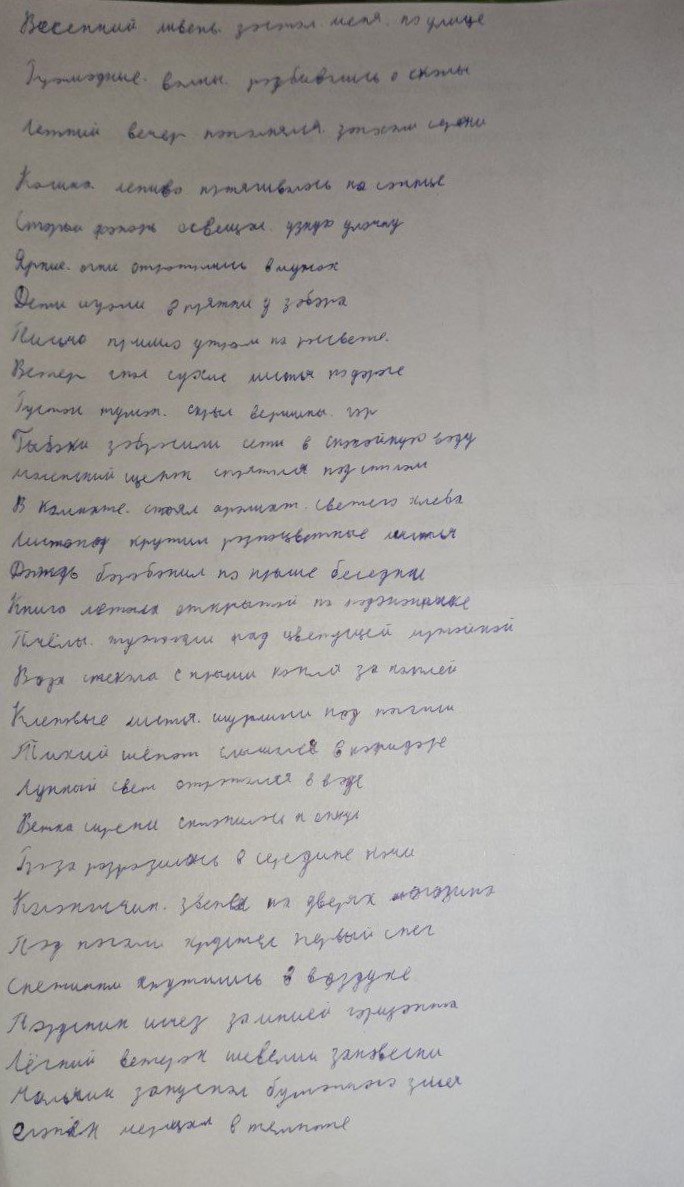 Весенний ливень застал меня на улице
Громадные волны разбивались о скалы
Летний вечер наполнялся запахом сирени
Кошка лениво потягивалась на солнце
Старый фонарь освещал узкую улочку
Яркие огни отражались в лужах
Дети играли в прятки у забора
Письмо пришло утром на рассвете.
Ветер гнал сухие листья по дороге
Густой туман скрыл вершины гор
Рыбаки забросили сети в спокойную воду
Маленький щенок спрятался под столом
В комнате стоял аромат свежего хлеба
Листопад крутил разноцветные листья
Дождь барабанил по крыше беседки
Книга лежала открытой на подоконнике
Пчёлы жужжали над цветущей
Вода стекала с крыши капля за каплей
Кленовые листья шуршали под ногами
Тихий шёпот слышался в коридоре
Лунный свет отражался в воде
Ветка сирени склонилась к окну
Гроза разразилась в середине ночи
Колокольчик звенел на дверях магазина
Под ногами хрустел первый снег
Снежинки кружились в воздухе
Парусник исчез за линией горизонта
Лёгкий ветерок шевелил занавески
Мальчик запускал бумажного змея
Огонёк мерцал в темноте